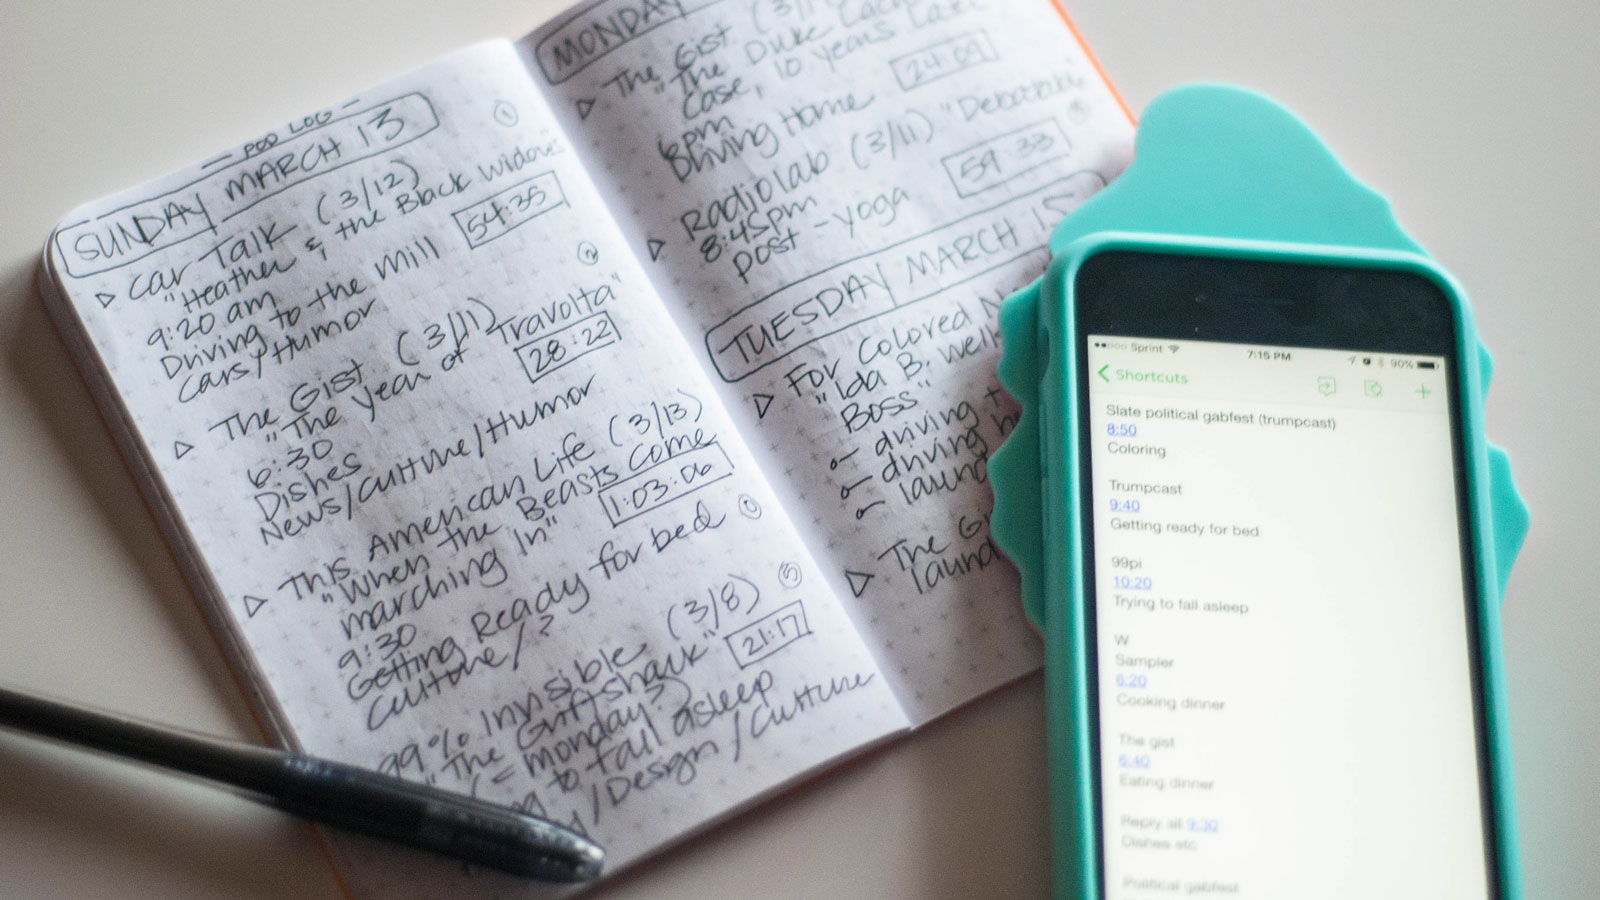 — POD LOG —
SUNDAY MARCH 13
①
▷ Car Talk (3/12)
"Heather & the Black Widows"
9:20 am
54:35
Driving to the Mill
Cars/Humor
②
▷ The Gist (3/11)
"The Year of Travolta"
6:30
28:22
Dishes
News/Culture/Humor
▷ This American Life (3/13)
"When the Beasts Come
Marching In"
1:03:06
9:30
Getting Ready for bed
Culture/?
99% Invisible (3/8)
"The Giftshack"
21:17
(= Monday?)
to fall asleep
/Design/Culture
MONDAY
▷ The Gist
"The Duke
Case, 10 years Later
24:09
6pm
Driving Home
▷ Radiolab (3/11) "Debatable"
8:45pm
59:33
post-yoga
TUESDAY MARCH 15
▷ For Colored
"Ida B.
Boss"
driving
driving
▷ The
Sprint 7:15 PM 90%
Shortcuts
Slate political gabfest (trumpcast)
8:50
Coloring
Trumpcast
9:40
Getting ready for bed
99pi
10:20
Trying to fall asleep
W
Sampler
6:20
Cooking dinner
The gist
6:40
Eating dinner
Reply all 9:30
Dishes etc
Political gabfest